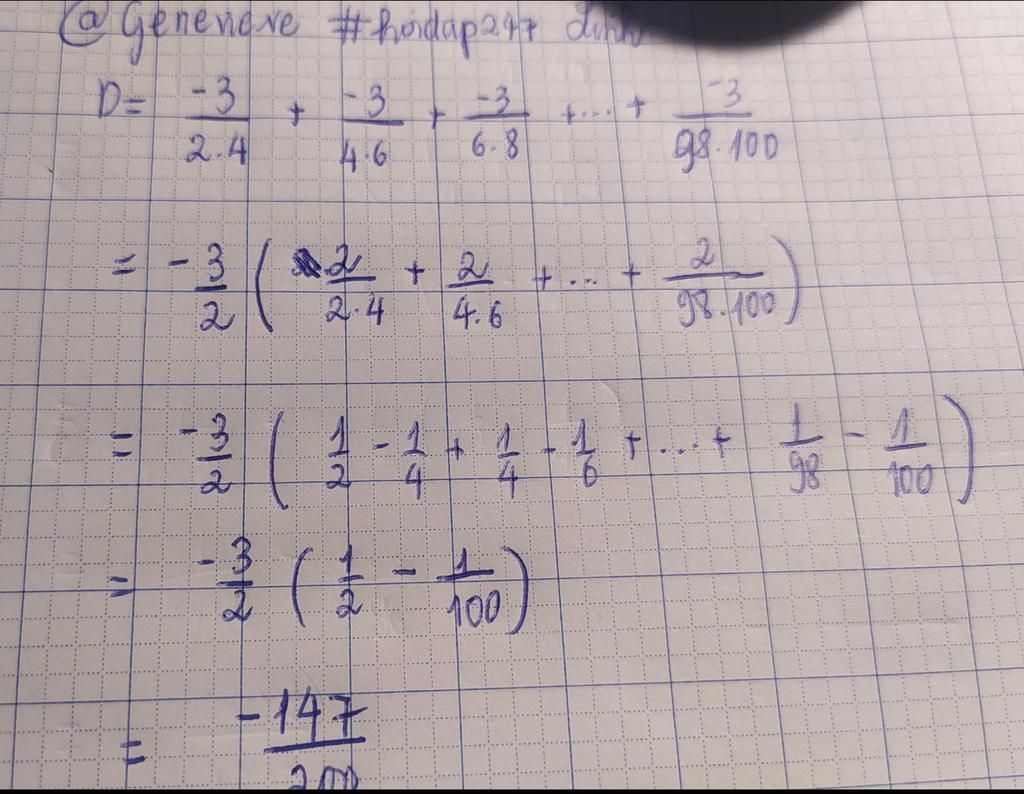 @Genevieve #hoidap247
D = -3/2.4 + -3/4.6 + -3/6.8 + ... + -3/98.100
= -3/2 ( 2/2.4 + 2/4.6 + ... + 2/98.100 )
= -3/2 ( 1/2 - 1/4 + 1/4 - 1/6 + ... + 1/98 - 1/100 )
= -3/2 ( 1/2 - 1/100 )
= -147/200